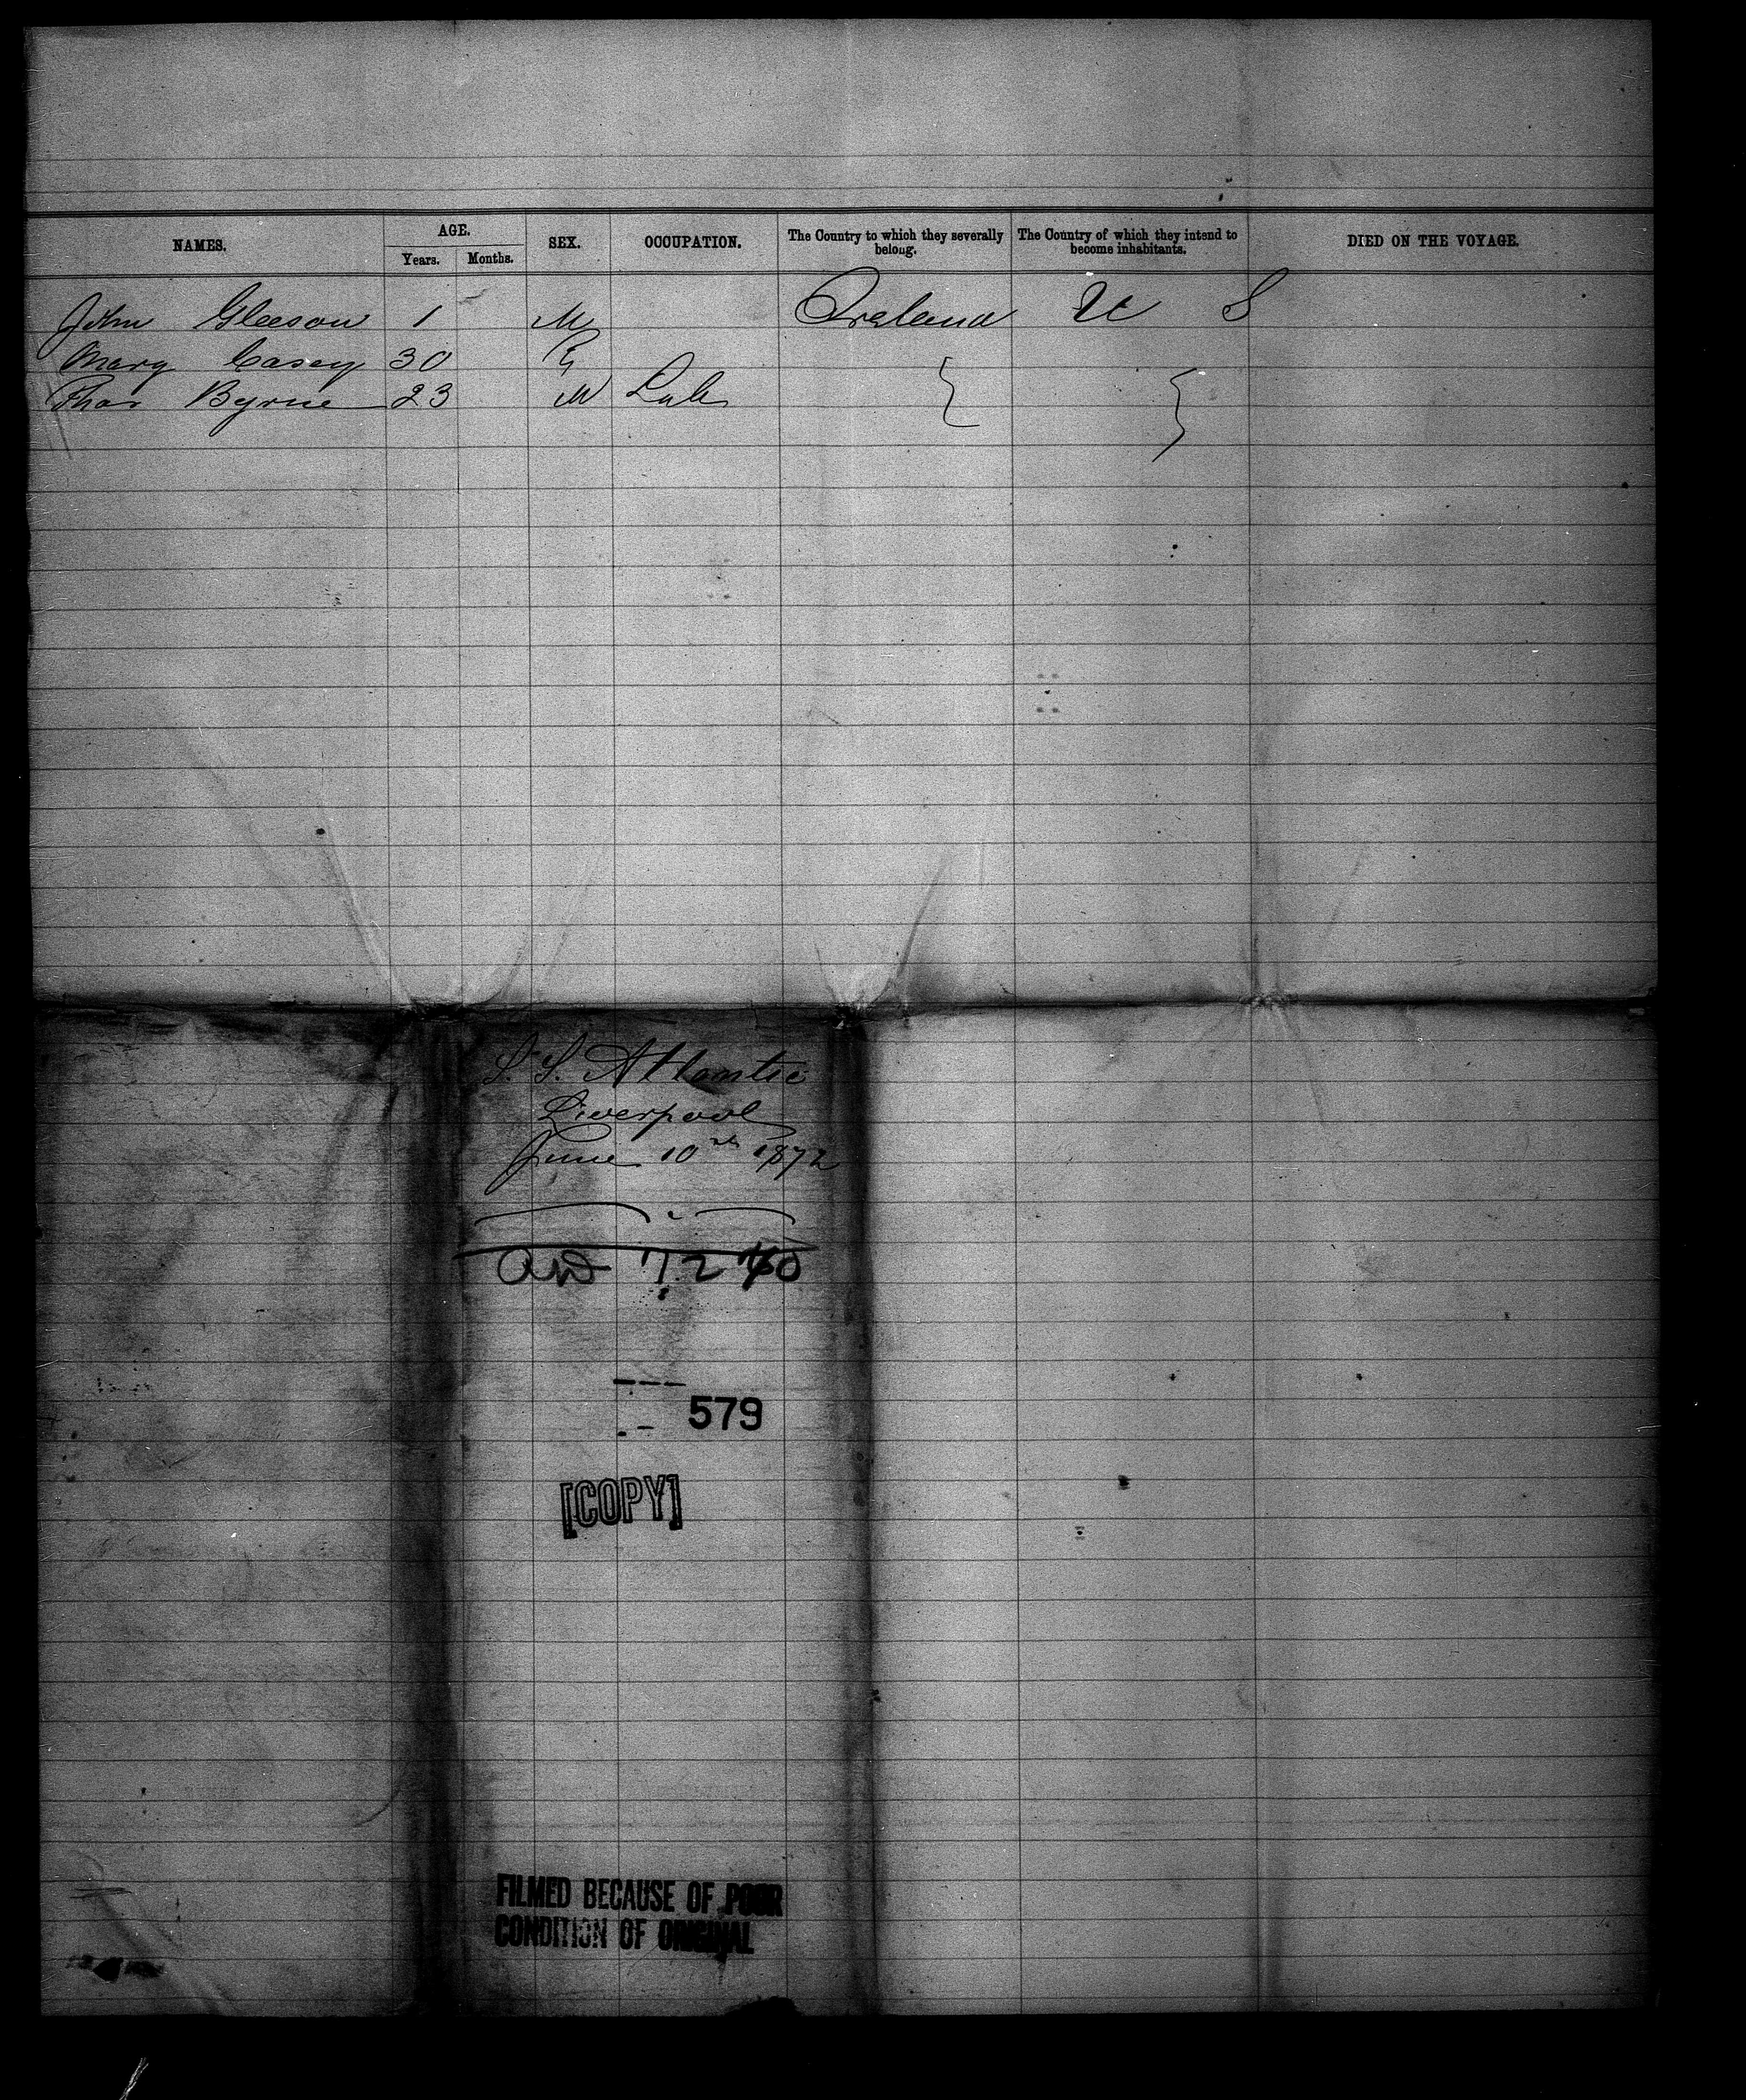 NAMES. AGE. SEX. OCCUPATION. The Country to which they severally belong. The Country of which they intend to become inhabitants. DIED ON THE VOYAGE.
Years. Months.
John Gleeson 1 M Ireland U S
Mary Casey 30 F
Thos Byrne 23 M Lab
S. S. Atlantic
Liverpool
June 10th 1872
579
[COPY]
FILMED BECAUSE OF POOR
CONDITION OF ORIGINAL